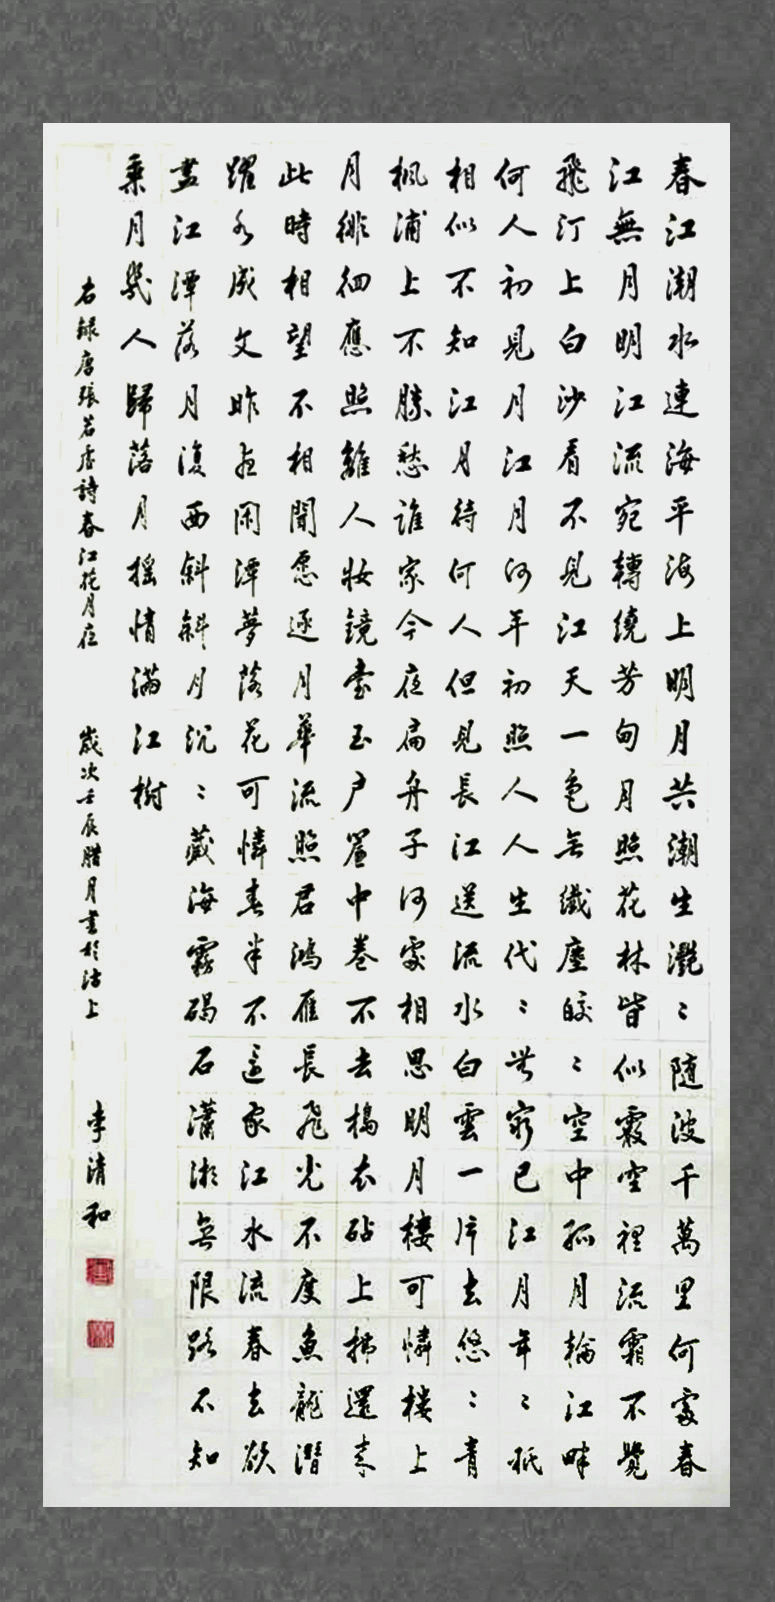 春江潮水連海平海上明月共潮生灔〻隨波千萬里何處春
江無月明江流宛轉繞芳甸月照花林皆似霰空裡流霜不覺
飛汀上白沙看不見江天一色無纖塵皎〻空中孤月輪江畔
何人初見月江月何年初照人人生代〻無窮已江月年〻祇
相似不知江月待何人但見長江送流水白雲一片去悠〻青
楓浦上不勝愁誰家今夜扁舟子何處相思明月樓可憐樓上
月徘徊應照離人妝鏡臺玉戶簾中卷不去搗衣砧上拂還來
此時相望不相聞愿逐月華流照君鴻雁長飛光不度魚龍潛
躍水成文昨夜閑潭夢落花可憐春半不還家江水流春去欲
盡江潭落月復西斜斜月沉〻藏海霧碣石瀟湘無限路不知
乘月幾人歸落月搖情滿江樹
右錄唐張若虛詩春江花月夜 歲次壬辰腊月書於沽上 李清和